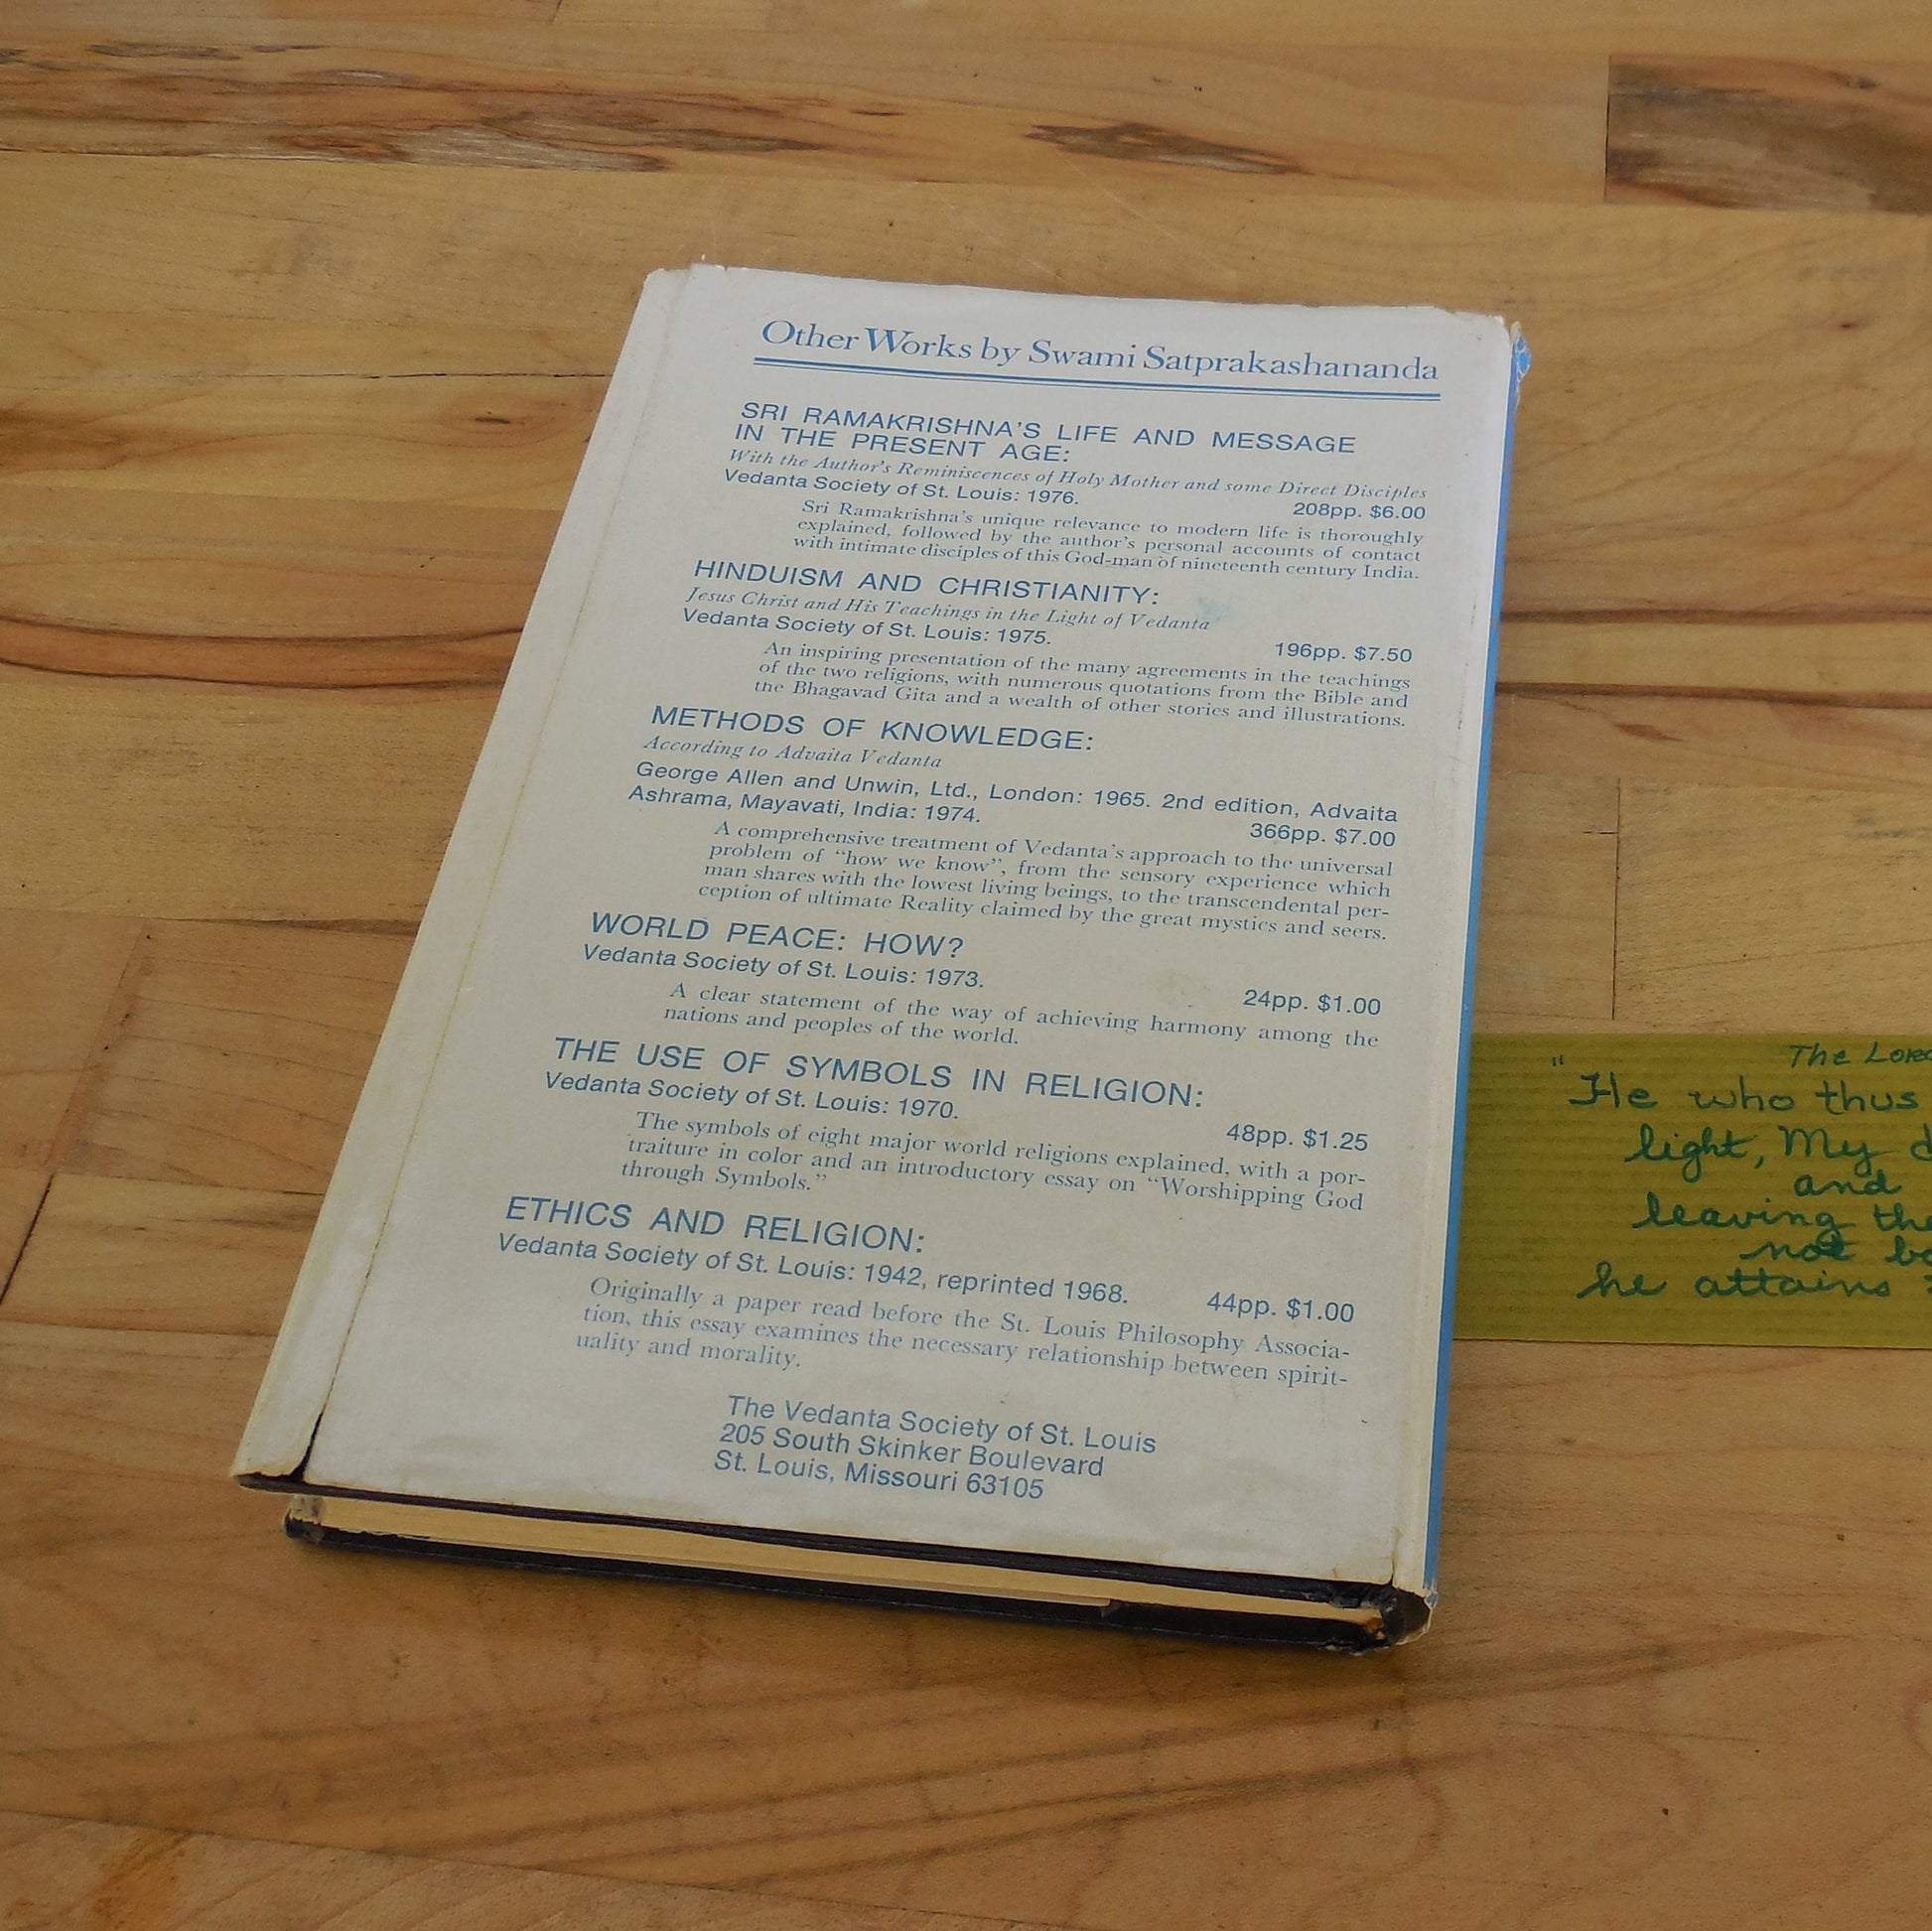 Other Works by Swami Satprakashananda
SRI RAMAKRISHNA'S LIFE AND MESSAGE
IN THE PRESENT AGE:
With the Author's Reminiscences of Holy Mother and some Direct Disciples
Vedanta Society of St. Louis: 1976. 208pp. $6.00
Sri Ramakrishna's unique relevance to modern life is thoroughly
explained, followed by the author's personal accounts of contact
with intimate disciples of this God-man of nineteenth century India.
HINDUISM AND CHRISTIANITY:
Jesus Christ and His Teachings in the Light of Vedanta
Vedanta Society of St. Louis: 1975. 196pp. $7.50
An inspiring presentation of the many agreements in the teachings
of the two religions, with numerous quotations from the Bible and
the Bhagavad Gita and a wealth of other stories and illustrations.
METHODS OF KNOWLEDGE:
According to Advaita Vedanta
George Allen and Unwin, Ltd., London: 1965. 2nd edition, Advaita
Ashrama, Mayavati, India: 1974. 366pp. $7.00
A comprehensive treatment of Vedanta's approach to the universal
problem of "how we know", from the sensory experience which
man shares with the lowest living beings, to the transcendental per-
ception of ultimate Reality claimed by the great mystics and seers.
WORLD PEACE: HOW?
Vedanta Society of St. Louis: 1973. 24pp. $1.00
A clear statement of the way of achieving harmony among the
nations and peoples of the world.
THE USE OF SYMBOLS IN RELIGION:
Vedanta Society of St. Louis: 1970. 48pp. $1.25
The symbols of eight major world religions explained, with a por-
traiture in color and an introductory essay on "Worshipping God
through Symbols."
ETHICS AND RELIGION:
Vedanta Society of St. Louis: 1942, reprinted 1968. 44pp. $1.00
Originally a paper read before the St. Louis Philosophy Associa-
tion, this essay examines the necessary relationship between spirit-
uality and morality.
The Vedanta Society of St. Louis
205 South Skinker Boulevard
St. Louis, Missouri 63105
The
"He who thus
light, My
and
leaving
not
he attains